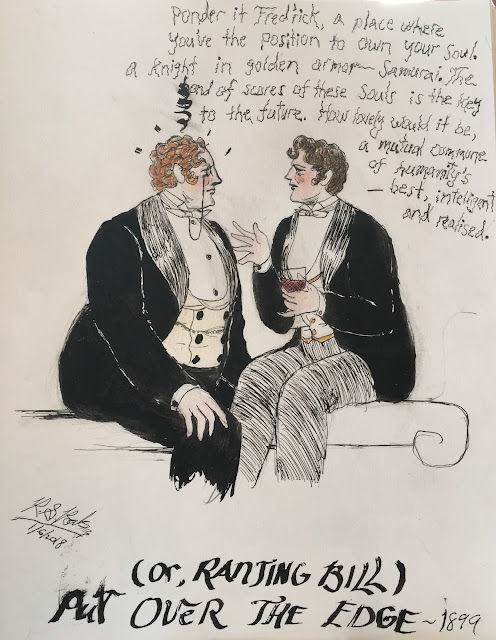 Ponder it Fredrick, a place where
you've the position to own your soul.
a Knight in golden armor~ Samurai. The
and of scores of these souls is the key
to the future. How lovely would it be,
a mutual commune
of humanity's
— best, intelligent
and realised.
1/6/2018
(or, RANTING BILL)
PUT OVER THE EDGE ~ 1899